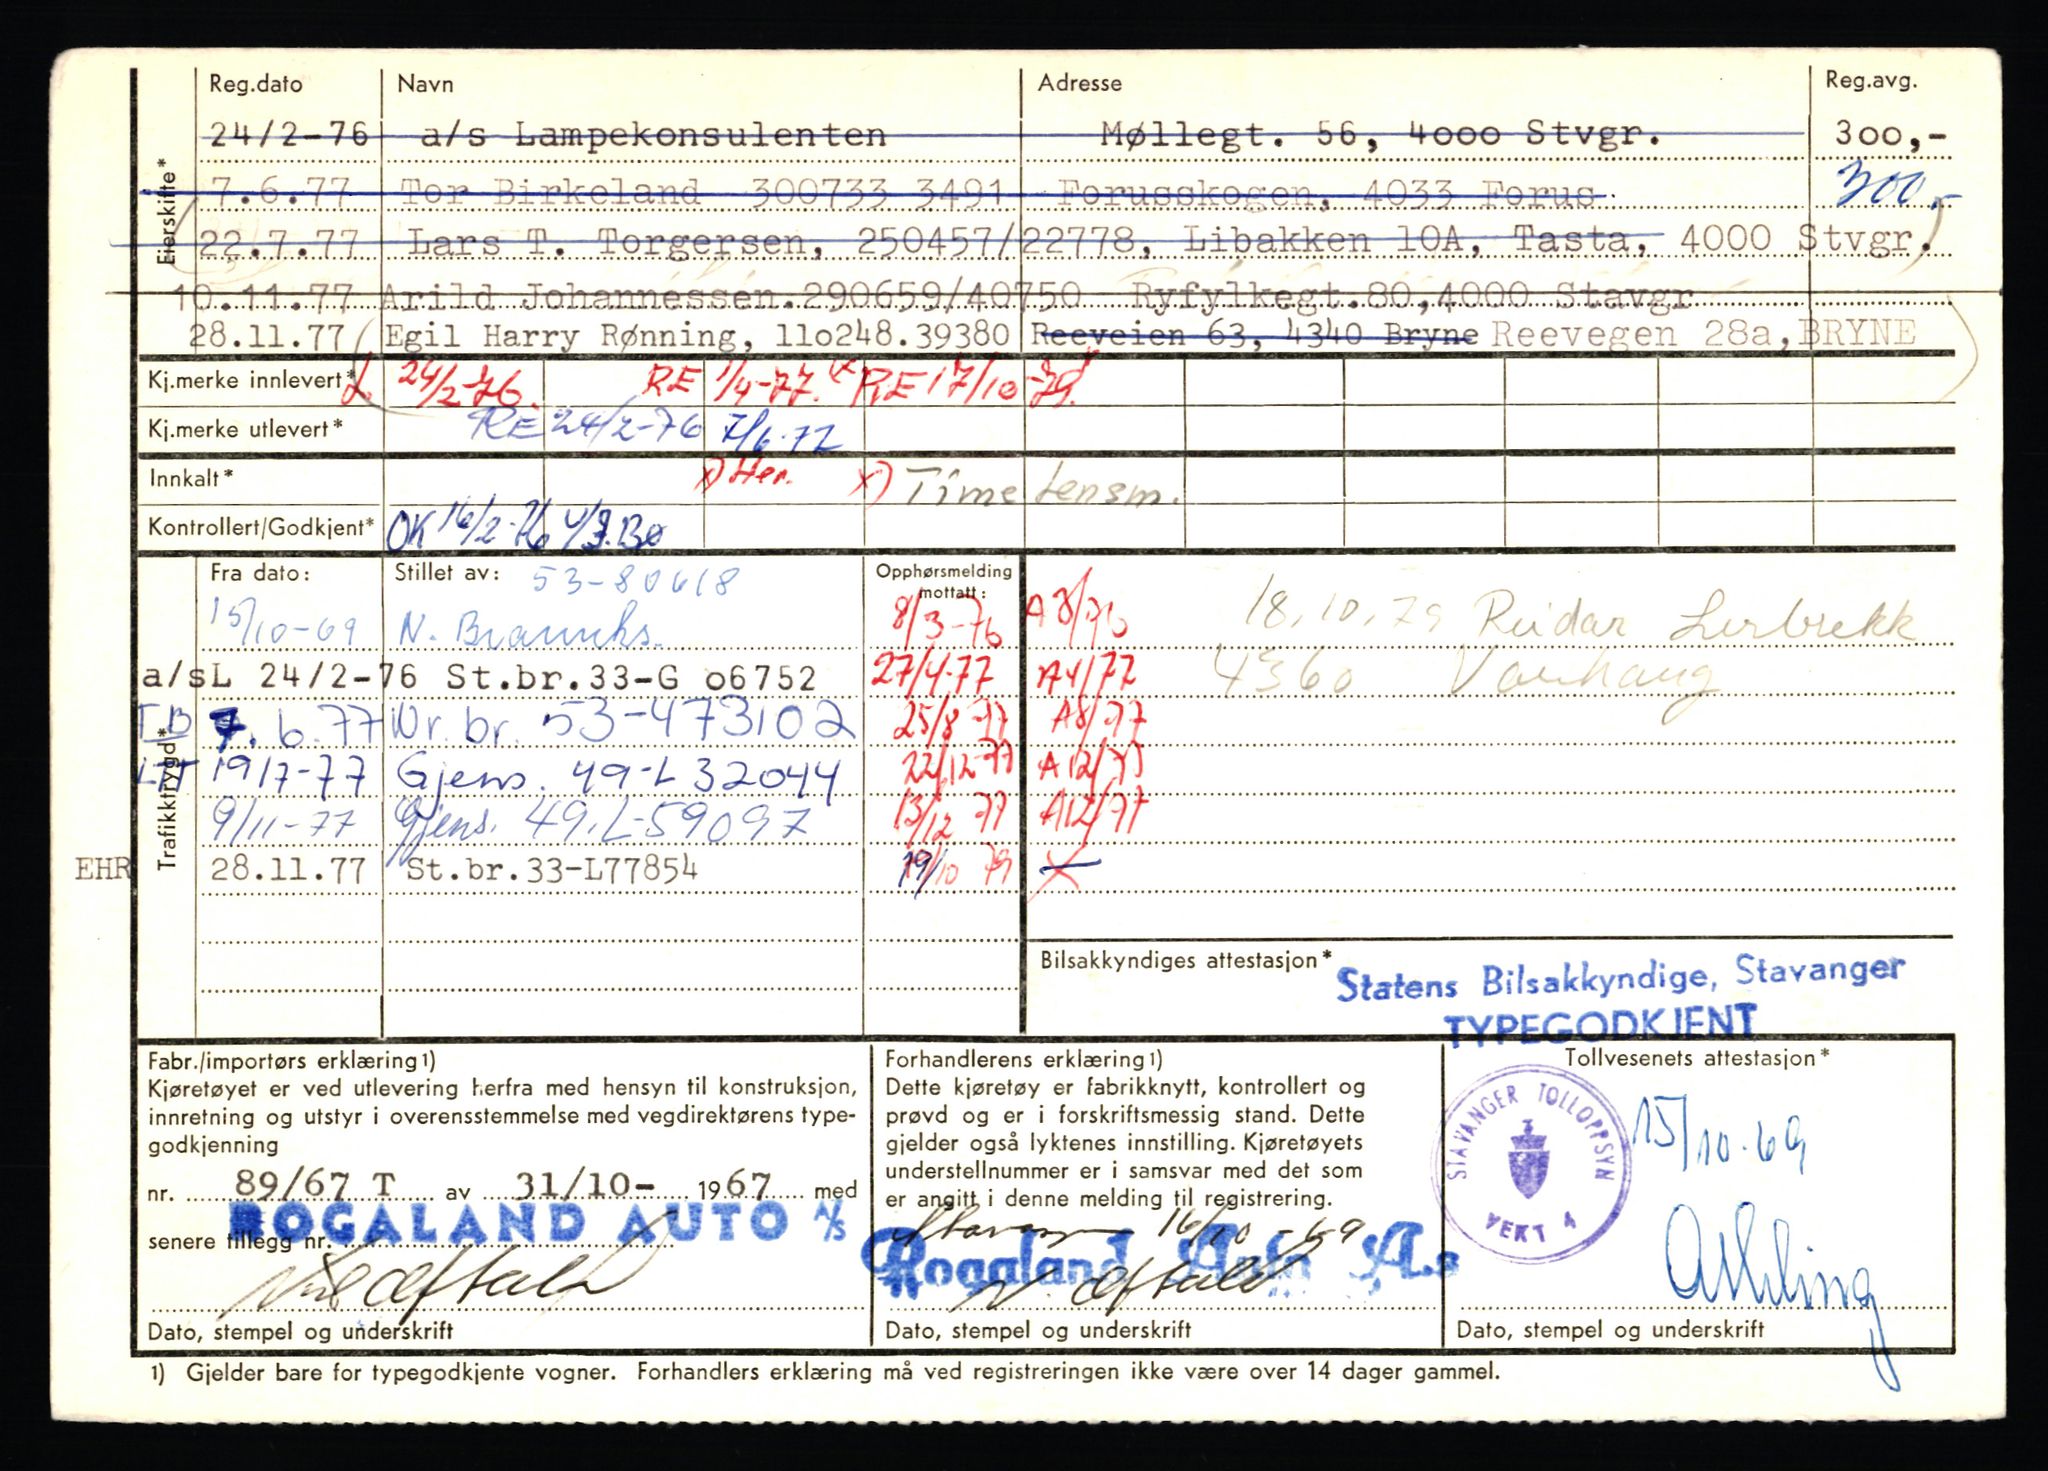 Reg.dato Navn Adresse Reg.avg.
Eierskifte*
24/2-76 a/s Lampekonsulenten Møllegt. 56, 4000 Stvgr. 300,-
7.6.77 Tor Birkeland 300733 3491 Forusskogen, 4033 Forus 300,-
22.7.77 Lars T. Torgersen, 250457/22778, Libakken 10A, Tasta, 4000 Stvgr.
10.11.77 Arild Johannessen.290659/40750 Ryfylkegt.80,4000 Stavgr
28.11.77 Egil Harry Rønning, 110248.39380 Reeveien 63, 4340 Bryne Reevegen 28a, BRYNE
Kj.merke innlevert* L. 24/2-76. RE 1/4-77. x) RE 17/10-79.
Kj.merke utlevert* RE 24/2-76 7/6-77
Innkalt* x) Her. x) Time lensm.
Kontrollert/Godkjent* OK 16/2-76
Trafikktrygd*
Fra dato: Stillet av: 53-80618 Opphørsmelding mottatt:
15/10-69 8/3-76 A3/76 18.10.79 Reidar
a/sL 24/2-76 St.br.33-G o6752 27/4-77 A4/77 4360 Varhaug
TB 7.6.77 Nr. br. 53-473102 25/8 77 A8/77
LTT 19/7-77 Gjens. 49-L 32044 22/12-77 A12/77
9/11-77 Gjens. 49.L-59097 13/12 77 A12/77
EHR 28.11.77 St.br.33-L77854 19/10 79 X
Bilsakkyndiges attestasjon*
Statens Bilsakkyndige, Stavanger
TYPEGODKJENT
Fabr./importørs erklæring 1)
Kjøretøyet er ved utlevering herfra med hensyn til konstruksjon,
innretning og utstyr i overensstemmelse med vegdirektørens type-
godkjenning
nr. 89/67 T av 31/10- 1967 med
ROGALAND AUTO A/S
senere tillegg nr.
Dato, stempel og underskrift
Forhandlerens erklæring 1)
Dette kjøretøy er fabrikknytt, kontrollert og
prøvd og er i forskriftsmessig stand. Dette
gjelder også lyktenes innstilling. Kjøretøyets
understellnummer er i samsvar med det som
er angitt i denne melding til registrering.
Stavanger 16/10-69
Rogaland Auto A.s
Dato, stempel og underskrift
Tollvesenets attestasjon*
STAVANGER TOLLOPPSYN
VEKT 4
15/10-69
Dato, stempel og underskrift
1) Gjelder bare for typegodkjente vogner. Forhandlers erklæring må ved registreringen ikke være over 14 dager gammel.